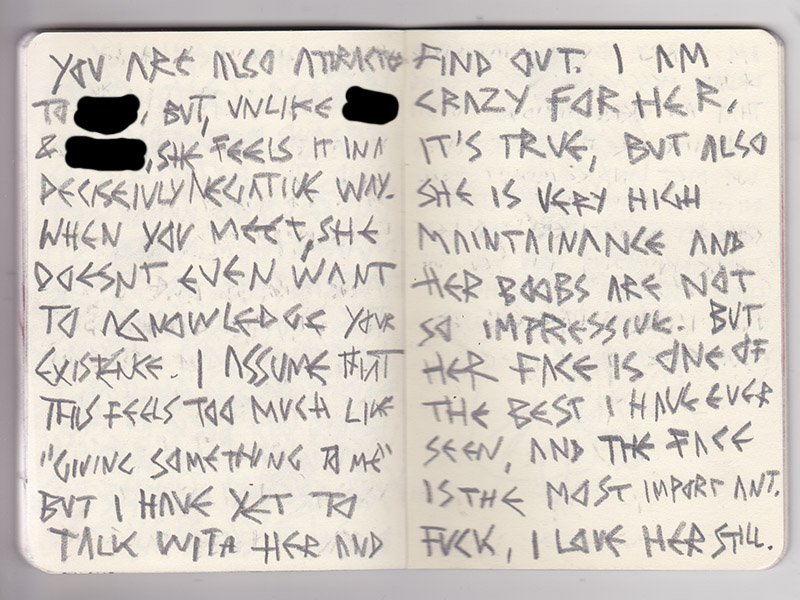 YOU ARE ALSO ATTRACTED
TO , BUT, UNLIKE
& , SHE FEELS IT IN A
DECISEIVLY NEGATIVE WAY.
WHEN YOU MEET, SHE
DOESNT EVEN WANT
TO AGNOWLEDGE YOUR
EXISTENCE. I ASSUME THAT
THIS FEELS TOO MUCH LIKE
"GIVING SOMETHING TO ME"
BUT I HAVE YET TO
TALK WITH HER AND
FIND OUT. I AM
CRAZY FOR HER,
IT'S TRUE, BUT ALSO
SHE IS VERY HIGH
MAINTAINANCE AND
HER BOOBS ARE NOT
SO IMPRESSIVE. BUT
HER FACE IS ONE OF
THE BEST I HAVE EVER
SEEN, AND THE FACE
IS THE MOST IMPORTANT.
FUCK, I LOVE HER STILL.